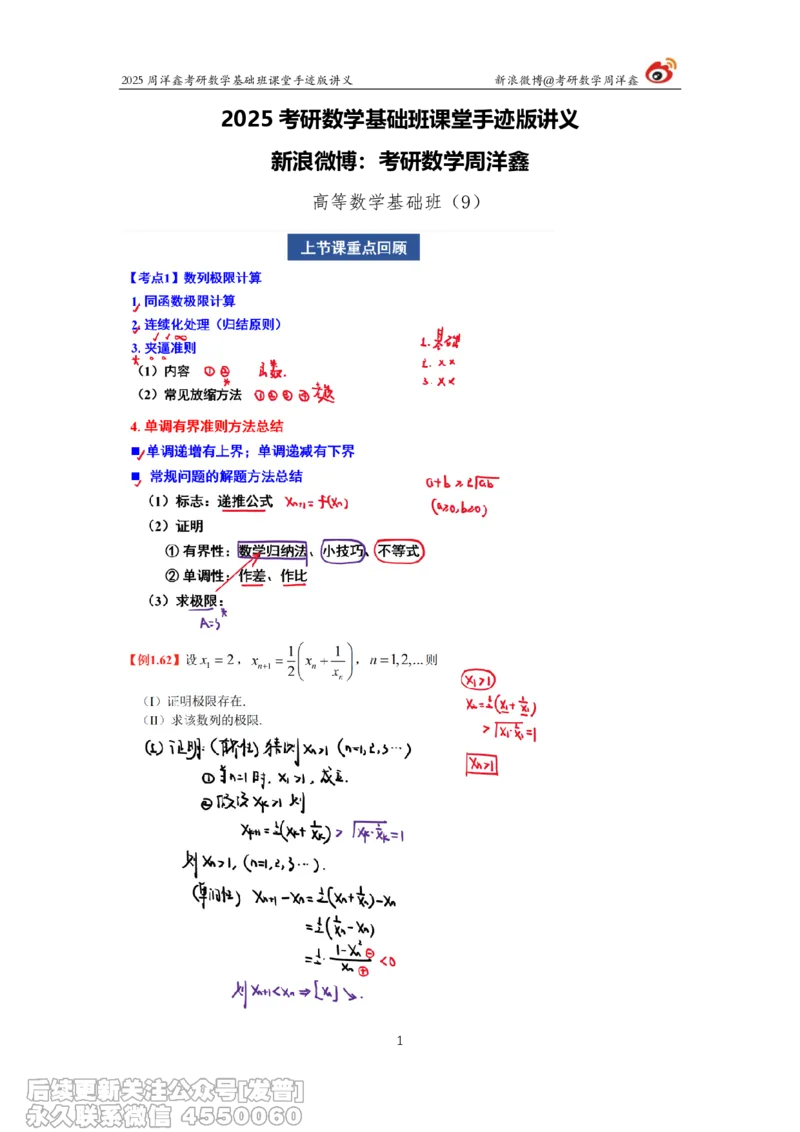 2025 周洋鑫考研数学基础班课堂手迹版讲义 新浪微博@考研数学周洋鑫
2025 考研数学基础班课堂手迹版讲义
新浪微博：考研数学周洋鑫
高等数学基础班（9）
上节课重点回顾
【考点1】数列极限计算
1. 同函数极限计算
2. 连续化处理（归结原则）
3. 夹逼准则
1. 基础
（1）内容 ① ②
2. ××
3. ××
（2）常见放缩方法 ① ② ③ ④
4. 单调有界准则方法总结
■ 单调递增有上界；单调递减有下界
■ 常规问题的解题方法总结
a+b ≥ 2√ab
（1）标志：递推公式 Xn+1 = f(Xn)
(a≥0, b≥0)
（2）证明
① 有界性：数学归纳法、小技巧、不等式
② 单调性：作差、作比
（3）求极限：
【例1.62】设 x₁ = 2，xₙ₊₁ = 1/2(xₙ + 1/xₙ)，n = 1,2,...则
X₁>1
（I）证明极限存在.
X₂=½(X₁+1/X₁)
（II）求该数列的极限.
> √X₁·1/X₁ =1
(I) 证明: (有界性) 猜测 Xn>1 (n=1,2,3…)
Xn>1
① 当n=1时, X₁>1, 成立.
② 假设 Xk>1 则
Xk+1=½(Xk+1/Xk) > √Xk·1/Xk =1
则 Xn>1, (n=1,2,3…).
(单调性) Xn+1-Xn=½(Xn+1/Xn)-Xn
=½(1/Xn-Xn)
=½·(1-Xn²)/Xn <0
则 Xn+1<Xn ⇒ {Xn}↘.
1
后续更新关注公众号[发普]
永久联系微信 4550060